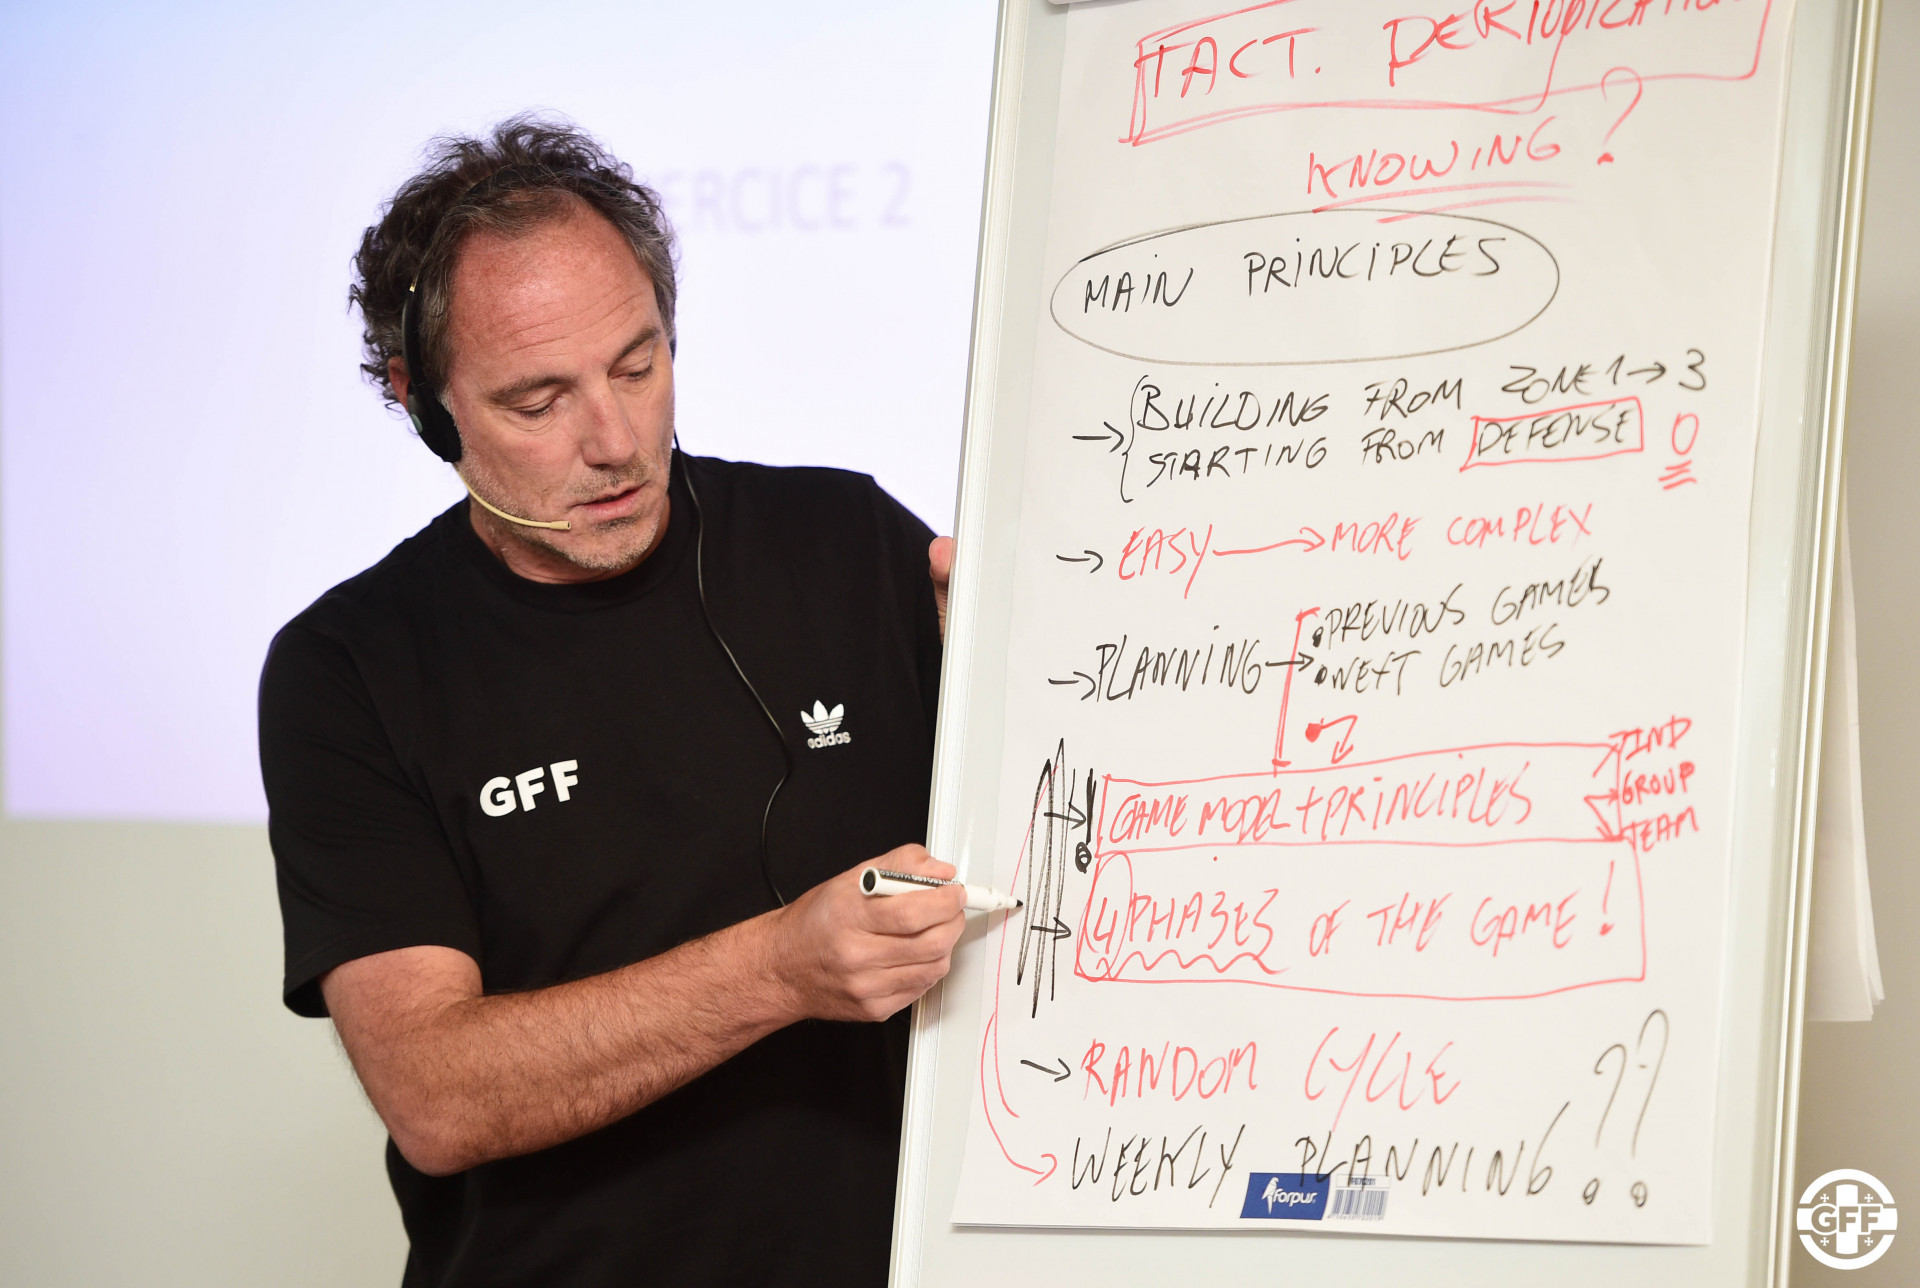 TACT. PERIODIZATION
KNOWING ?
MAIN PRINCIPLES
→ BUILDING FROM ZONE 1 → 3
STARTING FROM DEFENSE 0
→ EASY → MORE COMPLEX
→ PLANNING → • PREVIOUS GAMES
• NEXT GAMES
→ GAME MODEL + PRINCIPLES
IND
GROUP
TEAM
→ 4 PHASES OF THE GAME !
→ RANDOM CYCLE
→ WEEKLY PLANNING ??
forpus
ERCICE 2
GFF
adidas
GFF